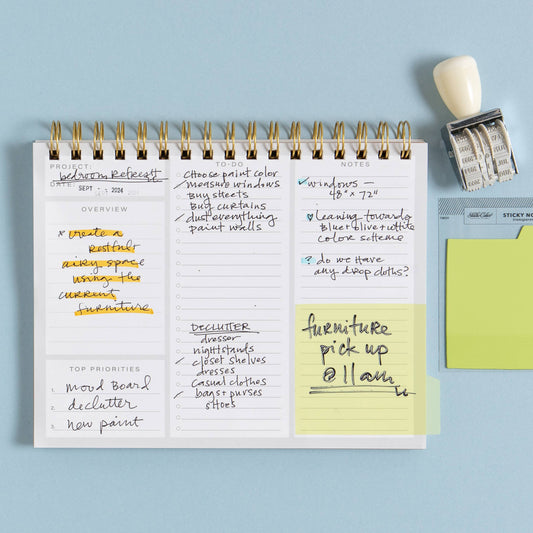 PROJECT:
bedroom Refresh
DATE: SEPT 2024
OVERVIEW
* create a
restful
airy space
using the
current
furniture
TOP PRIORITIES
1. mood board
2. declutter
3. new paint
TO-DO
choose paint color
measure windows
Buy sheets
Buy curtains
dust everything
paint walls
DECLUTTER
dresser
nightstands
closet shelves
dresses
casual clothes
bags + purses
shoes
NOTES
windows —
48" x 72"
leaning towards
blue + olive + white
color scheme
? do we have
any drop cloths?
furniture
pick up
@ 11 am
STICKY NO